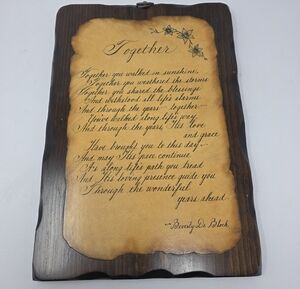 Together
Together you walked in sunshine,
Together you weathered the storms
Together you shared the blessings
And withstood all life's alarms
And through the years together
You've walked along life's way
And through the years, His love
and grace
Have brought you to this day-
And may His peace continue
As along life's path you tread
And His loving presence guide you
Through the wonderful
years ahead.
-Beverly De Block